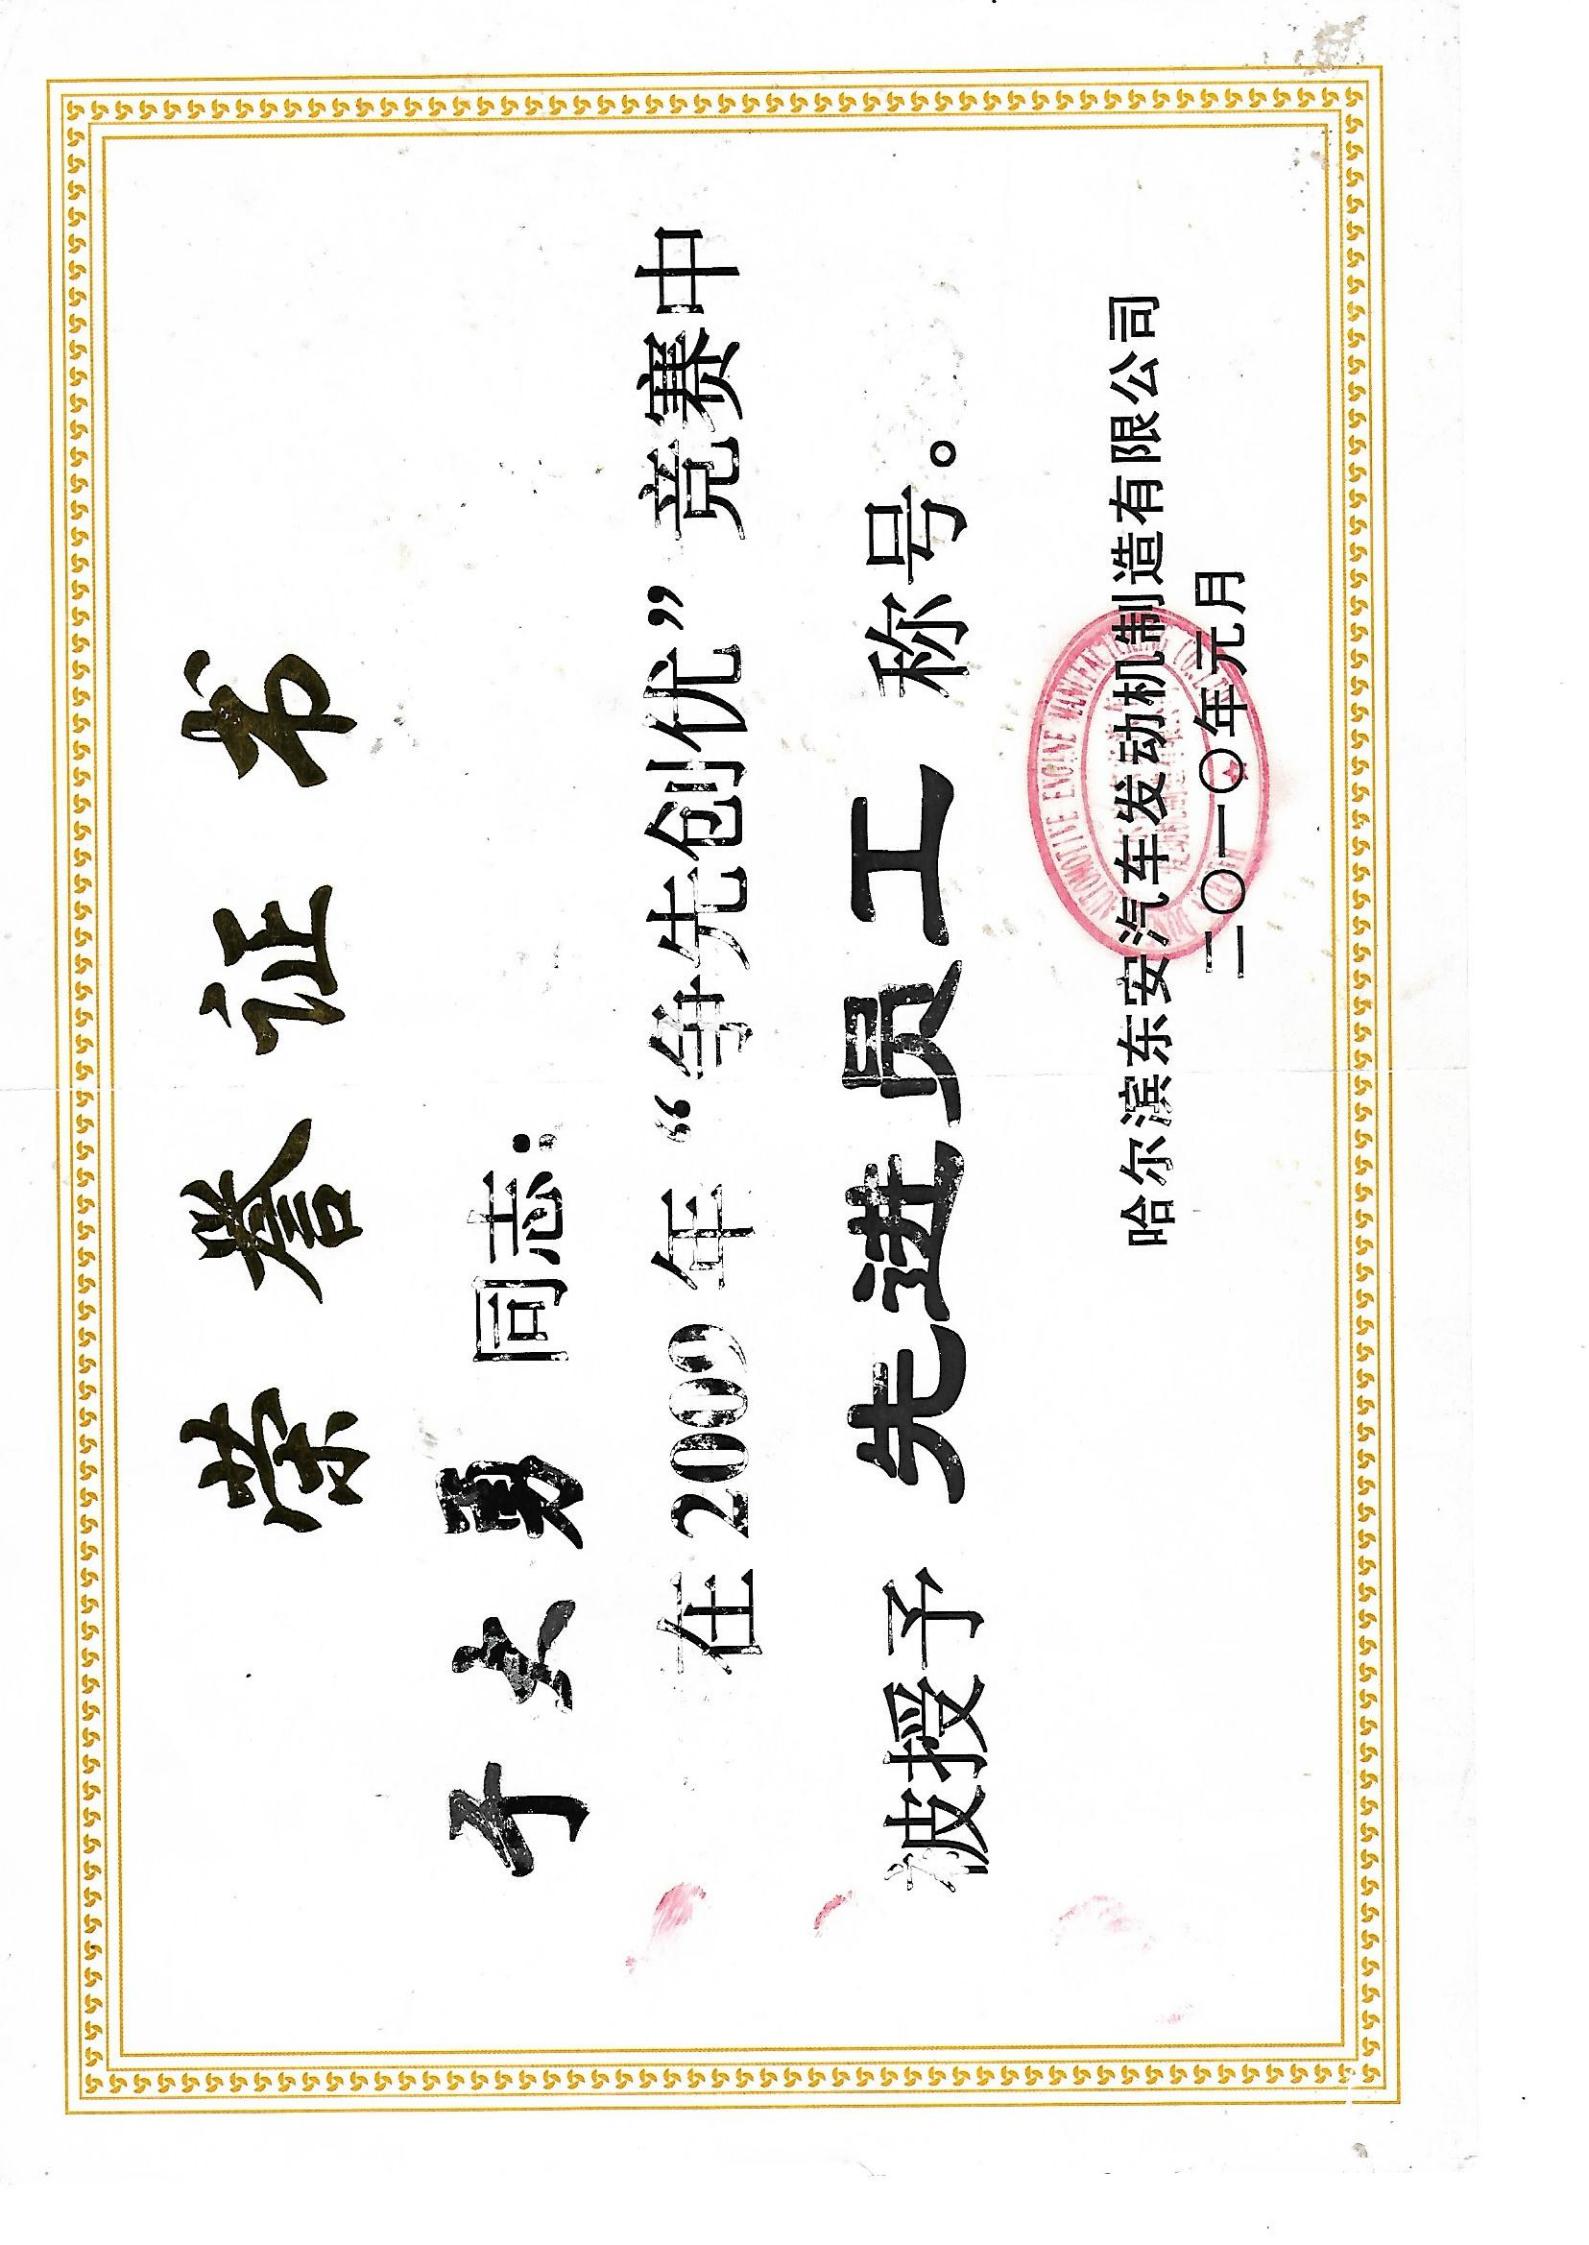 荣誉证书
于文勇 同志：
在2009年“争先创优”竞赛中
被授予 先进员工 称号。
哈尔滨东安汽车发动机制造有限公司
二〇一〇年元月
AUTOMOTIVE ENGINE MANUFACTURING CO.